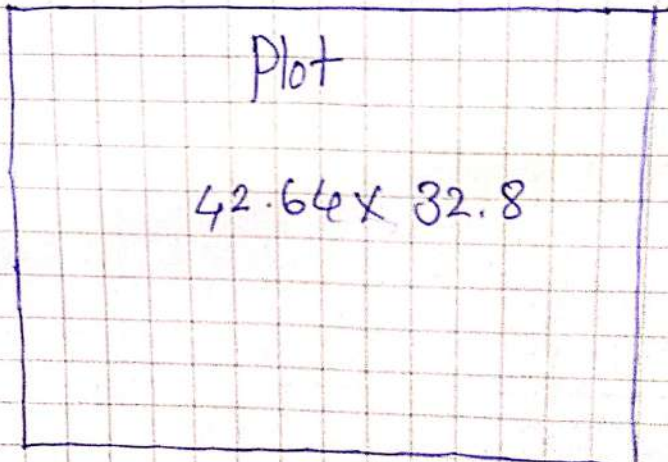 Plot
42.64 x 32.8